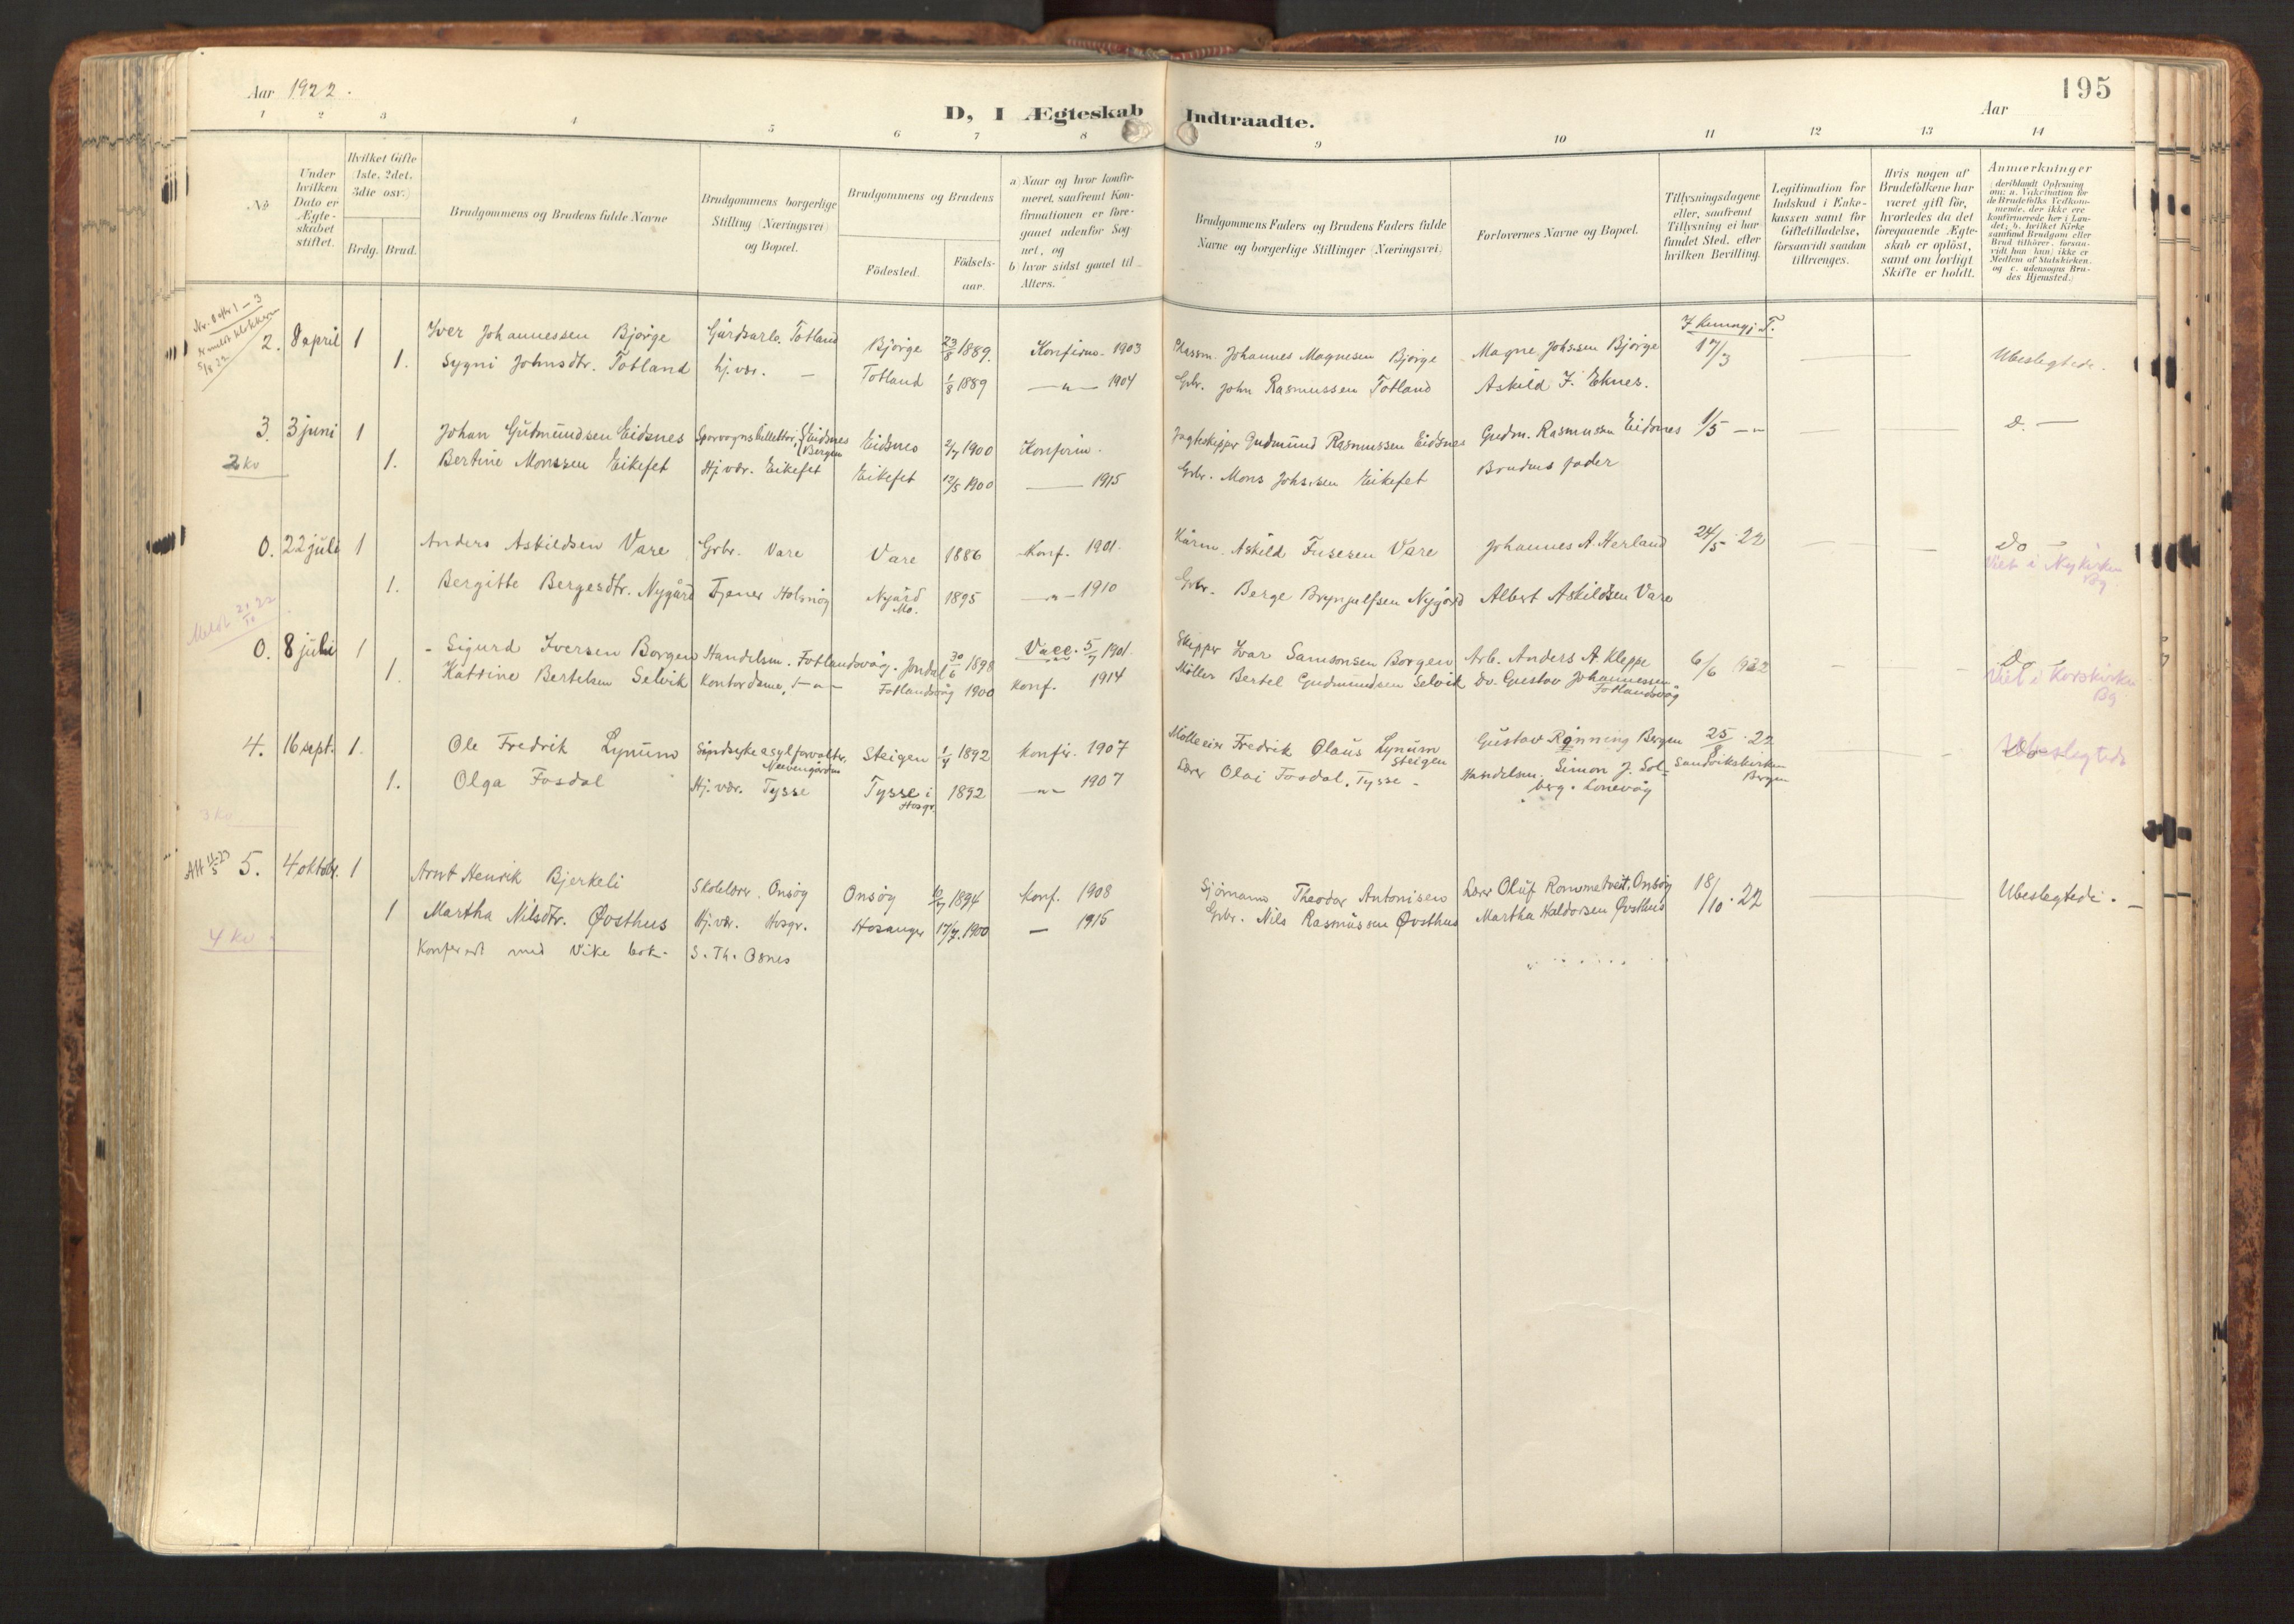 Aar 1922.
D, I Ægteskab Indtraadte.
Aar
195
1 2 3 4 5 6 7 8 9 10 11 12 13 14
No
Under hvilken Dato er Ægteskabet stiftet.
Hvilket Gifte (1ste, 2det, 3die osv.)
Brdg. Brud.
Brudgommens og Brudens fulde Navne
Brudgommens borgerlige Stilling (Næringsvei) og Bopæl.
Brudgommens og Brudens
Födested.
Födselsaar.
a) Naar og hvor konfirmeret, saafremt Konfirmationen er foregaaet udenfor Sognet, og
b) hvor sidst gaaet til Alters.
Brudgommens Faders og Brudens Faders fulde Navne og borgerlige Stillinger (Næringsvei)
Forlovernes Navne og Bopæl.
Tillysningsdagene eller, saafremt Tillysning ei har fundet Sted, efter hvilken Bevilling.
Legitimation for Indskud i Enkekassen samt for Giftetilladelse, forsaavidt saadan tiltrænges.
Hvis nogen af Brudefolkene har været gift för, hvorledes da det foregaaende Ægteskab er oplöst, samt om lovligt Skifte er holdt.
Anmærkninger
(deriblandt Oplysning om: a. Vakcination for de Brudefolks Vedkommende, der ikke ere konfirmerede her i Landet; b. hvilket Kirkesamfund Brudgom eller Brud tilhörer, forsaavidt han (hun) ikke er Medlem af Statskirken, og c. udensogns Brudes Hjemsted.)
2. 8 april 1 Iver Johannessen Bjørge Gårdsarb. Totland Bjørge 23/8 1889. Konfirm. 1903 Johannes Magnesen Bjørge Magne Johssen Bjørge 17/3 Ubeslegtede.
1. Sygni Johnsdtr. Totland hj.vær. — Totland 1/8 1889 —"— 1904 Gbr. John Rasmussen Totland Askild J. Eknes.
3. 3 juni 1 Johan Gudmundsen Eidsnes Sporvognsbillettør, Eidsnes Bergen Eidsnes 2/7 1900 Konfirm. Jagtskipper Gudmund Rasmussen Eidsnes Gudm. Rasmussen Eidsnes 1/5 —"— D. —
2 kv 1. Bertine Monssen Eikefet Hj.vær. Eikefet Eikefet 12/5 1900 — 1915 Gbr. Mons Johssen Eikefet Brudens fader
0. 22 juli 1 Anders Askildsen Vare Gbr. Vare Vare 1886 Konf. 1901. Kårm. Askild Fusesen Vare Johannes A. Herland 24/5 22 Do —
Viet i Nykirken Bg
1. Bergitte Bergesdtr. Nygård Tjener Holsnøy Nygård Mo. 1895 —"— 1910 Gbr. Berge Brynjulfsen Nygård Albert Askildsen Vare
Meldt 21/10 22
0. 8 juli 1 Sigurd Iversen Borgen Handelsm. Fotlandsvåg. Jondal 30/6 1898 Vacc. 5/7 1901. Skipper Ivar Samsonsen Borgen Arb. Anders A. Kleppe 6/6 1922 Do —
Viet i Korskirken Bg
1. Katrine Bertelsen Selvik Kontordame, —"— Fotlandsvåg 1900 Konf. 1914 Møller Bertel Gudmundsen Selvik Do. Gustav Johannessen Fotlandsvåg
4. 16 sept. 1. Ole Fredrik Lynum Sindssykeasylforvalter, Neevengården Steigen 1/4 1892 Konfir. 1907 Mølleeier Fredrik Olaus Lynum Steigen Gustav Rønning Bergen 25/8 22 Sandvikskirken Bergen Ubeslegtede
1. Olga Fosdal Hj.vær. Tysse Tysse i Hosgr. 1892 —"— 1907 Lærer Olai Fosdal, Tysse Handelsm. Simon J. Solberg. Lonevåg
3 kv
5. 4 oktobr. 1 Arnt Henrik Bjerkeli Skolelærer. Onsøy Onsøy 1894 Konf. 1908 Sjømann Theodor Antonisen Lærer Oluf Rommetveit, Onsøy 18/10 22 Ubeslegtede. —
1 Martha Nilsdtr. Øvsthus Hj.vær. Hosgr. Hosanger 17/7 1900 — 1915 Gbr. Nils Rasmussen Øvsthus Martha Haldorsen Øvsthus
4 kv
Konferert med Vike bok. S. Th. Osnes